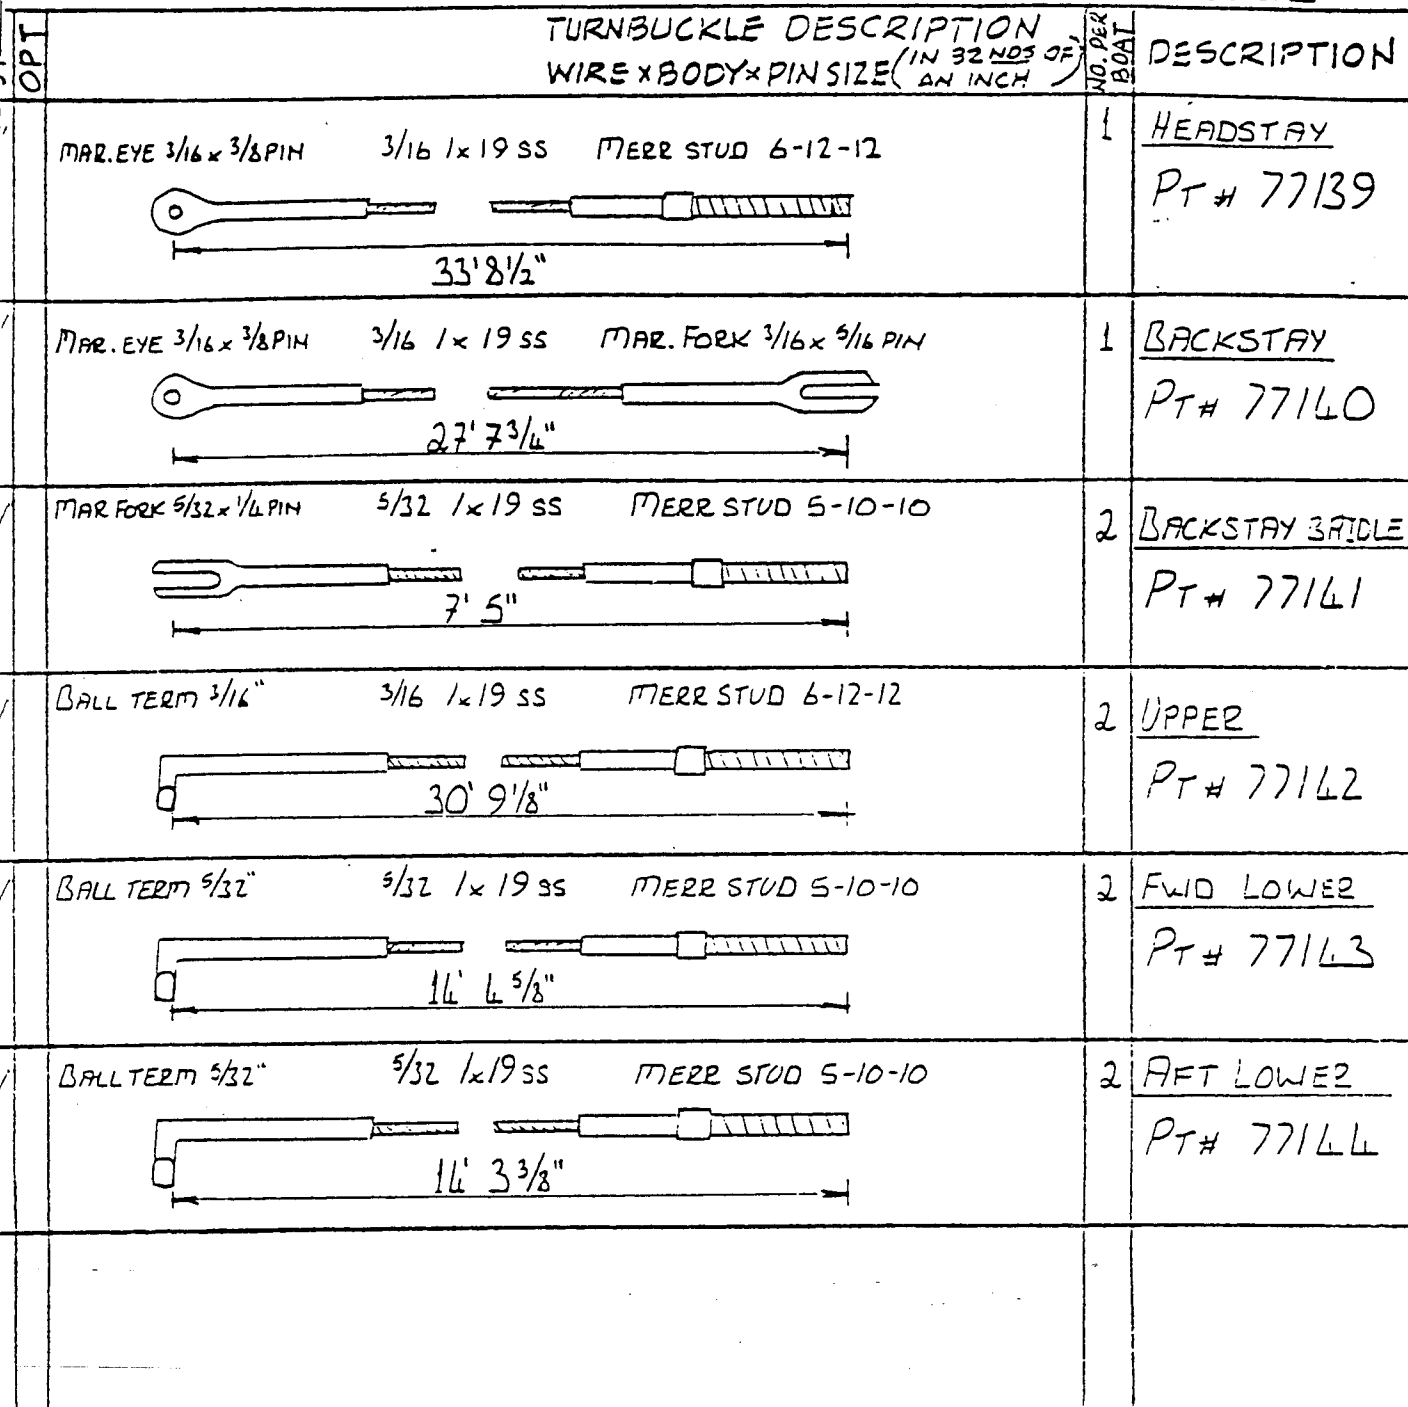 OPT
TURNBUCKLE DESCRIPTION
WIRE x BODY x PIN SIZE (IN 32 NDS OF AN INCH)
NO. PER BOAT
DESCRIPTION
MAR. EYE 3/16 x 3/8 PIN 3/16 1x19 SS MERR STUD 6-12-12
33' 8 1/2"
1
HEADSTAY
PT # 77139
MAR. EYE 3/16 x 3/8 PIN 3/16 1x19 SS MAR. FORK 3/16 x 5/16 PIN
27' 7 3/4"
1
BACKSTAY
PT # 77140
MAR FORK 5/32 x 1/4 PIN 5/32 1x19 SS MERR STUD 5-10-10
7' 5"
2
BACKSTAY BRIDLE
PT # 77141
BALL TERM 3/16" 3/16 1x19 SS MERR STUD 6-12-12
30' 9 1/8"
2
UPPER
PT # 77142
BALL TERM 5/32" 5/32 1x19 SS MERR STUD 5-10-10
14' 4 5/8"
2
FWD LOWER
PT # 77143
BALL TERM 5/32" 5/32 1x19 SS MERR STUD 5-10-10
14' 3 3/8"
2
AFT LOWER
PT # 77144